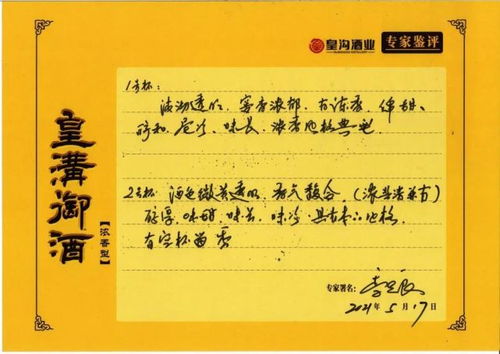 皇沟酒业
专家鉴评
皇溝御酒
【浓香型】
1号杯:
清澈透明、窖香浓郁、有陈香、绵甜、
味长、浓香风格典型
2号杯 酒色微黄透明、香气馥合、(浓
醇厚、味甜、味长、味净、具有本品风格
有空杯留香
专家署名:
2021年5月17日